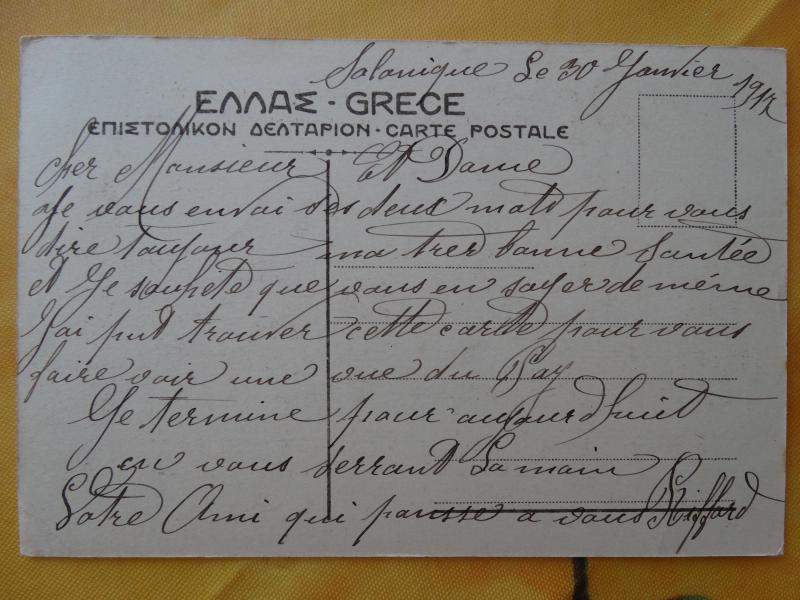 Salonique Le 30 Janvier 1917
ΕΛΛΑΣ · GRECE
ΕΠΙΣΤΟΛΙΚΟΝ ΔΕΛΤΑΡΙΟΝ · CARTE POSTALE
Cher Monsieur Et Dame
Je vous envoi ses deux mots pour vous
dire toujour ma tres bonne Santée
et Je souhete que vous en soyer de même
J'ai put trouver cette carte pour vous
faire voir une vue du Pay
Je termine pour aujourdhuit
en vous serrant La main
Votre Ami qui pansse a vous Riffard